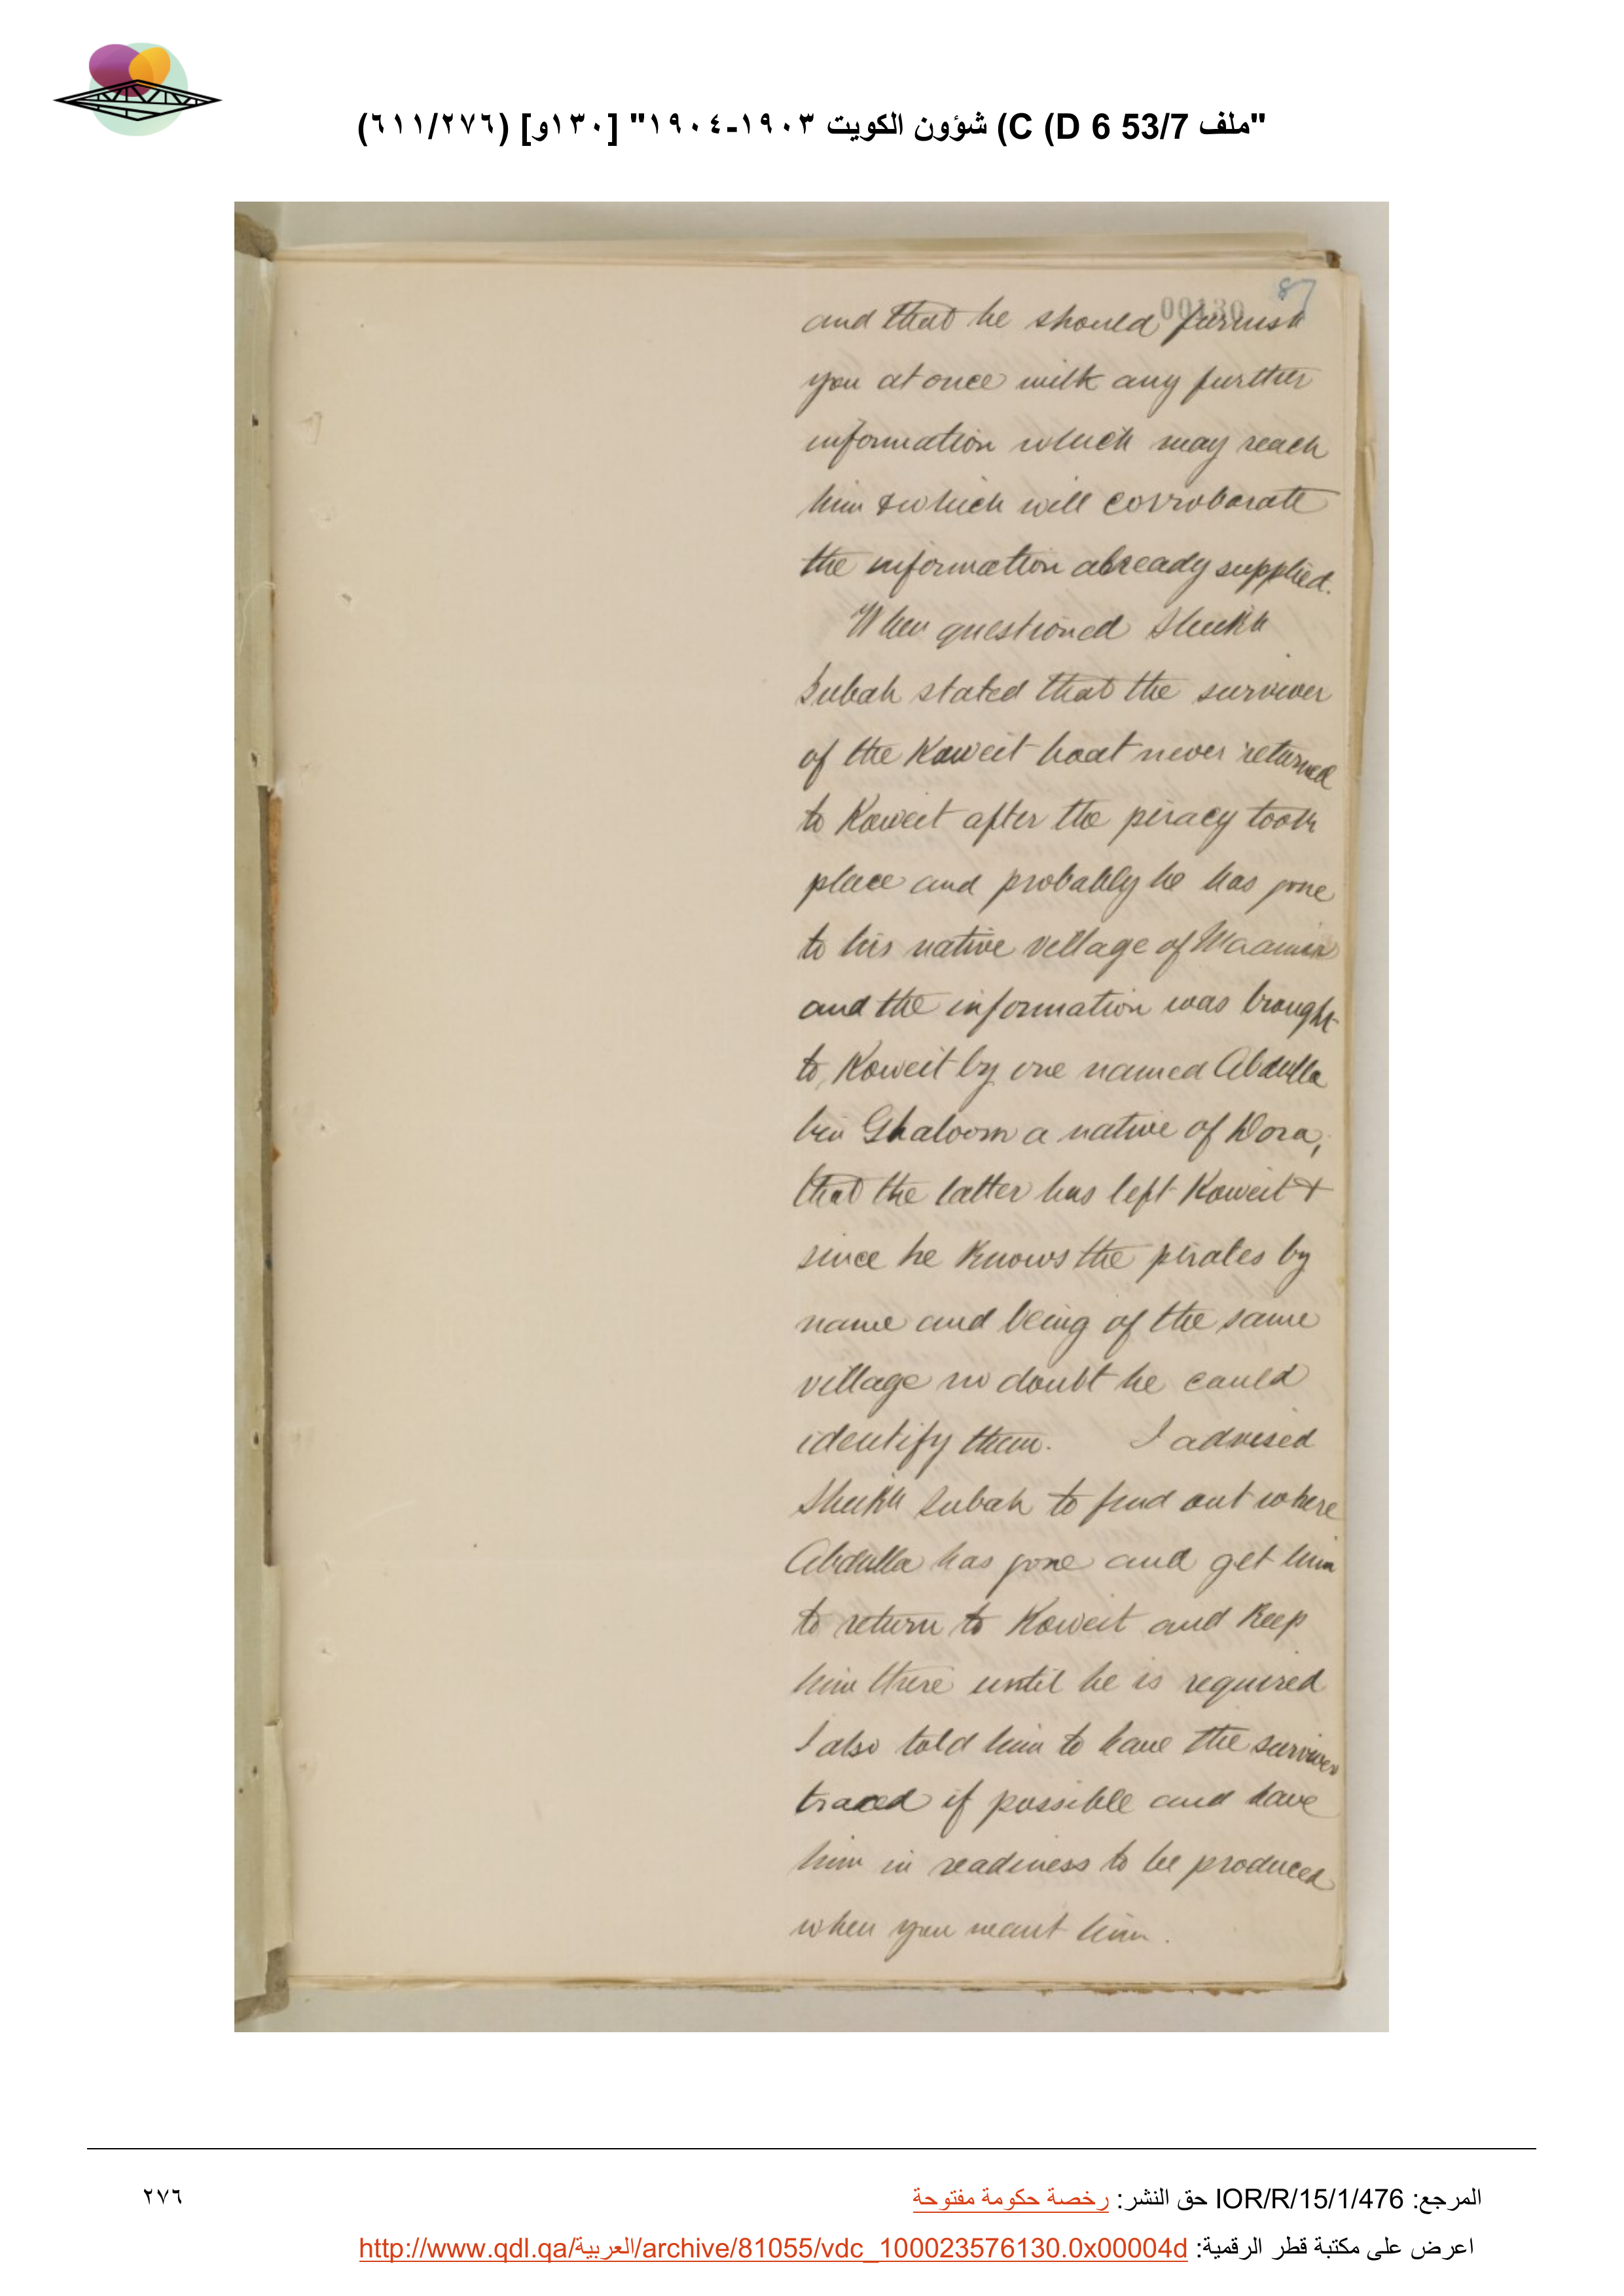 "ملف 53/7 D 6) C) شؤون الكويت ١٩٠٣-١٩٠٤" [١٣٠و] (٦١١/٢٧٦)
87
00130
and that he should furnish
you at once with any further
information which may reach
him & which will corroborate
the information already supplied.
When questioned Sheikh
Subah stated that the surviver
of the Koweit boat never returned
to Koweit after the piracy took
place and probably he has gone
to his native village of Maamir
and the information was brought
to Koweit by one named Abdulla
bin Ghaloom a native of Dora,
that the latter has left Koweit &
since he knows the pirates by
name and being of the same
village no doubt he could
identify them. I advised
Sheikh Subah to find out where
Abdulla has gone and get him
to return to Koweit and keep
him there until he is required
I also told him to have the surviver
traced if possible and have
him in readiness to be produced
when you want him.
المرجع: IOR/R/15/1/476 حق النشر: رخصة حكومة مفتوحة
٢٧٦
اعرض على مكتبة قطر الرقمية: http://www.qdl.qa/العربية/archive/81055/vdc_100023576130.0x00004d